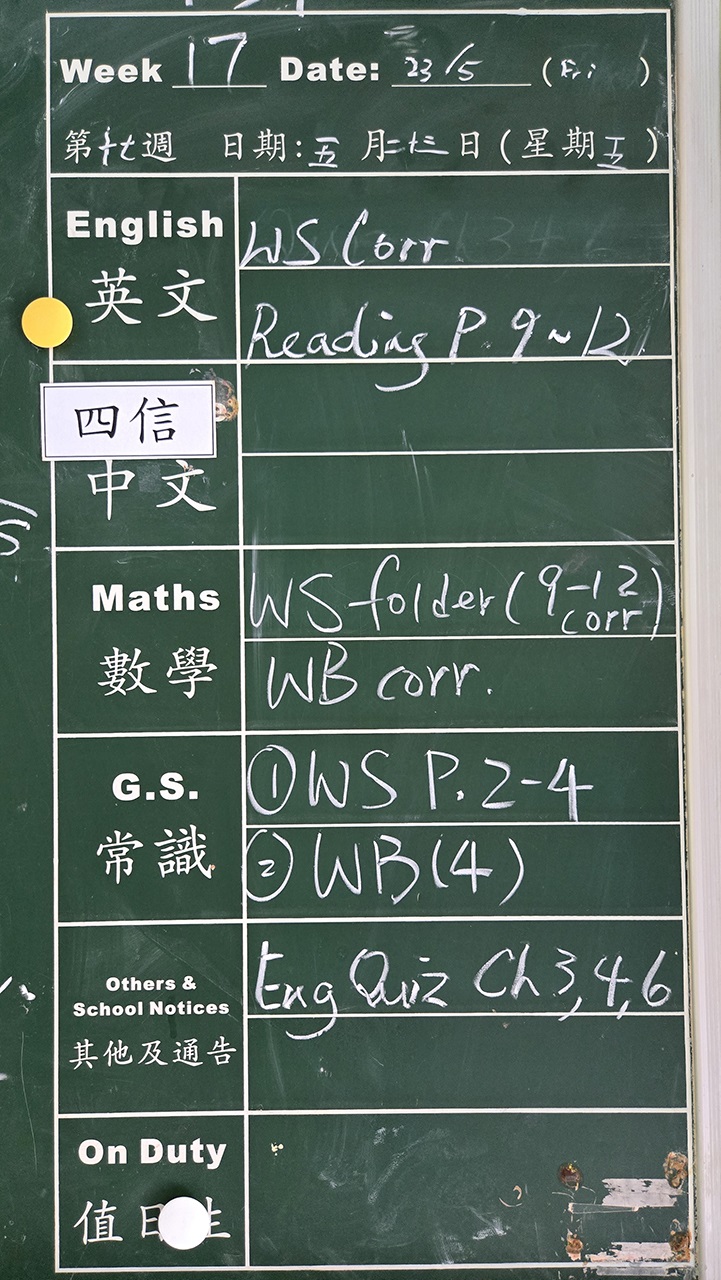 Week 17 Date: 23/5 (Fri)
第十七週 日期:五月二十三日(星期五)
English WS Corr
英文 Reading P. 9~12
四信
中文
Maths WS folder (9-12 corr)
數學 WB corr.
G.S. ① WS P. 2-4
常識 ② WB(4)
Others & School Notices Eng Quiz Ch 3,4,6
其他及通告
On Duty
值日生